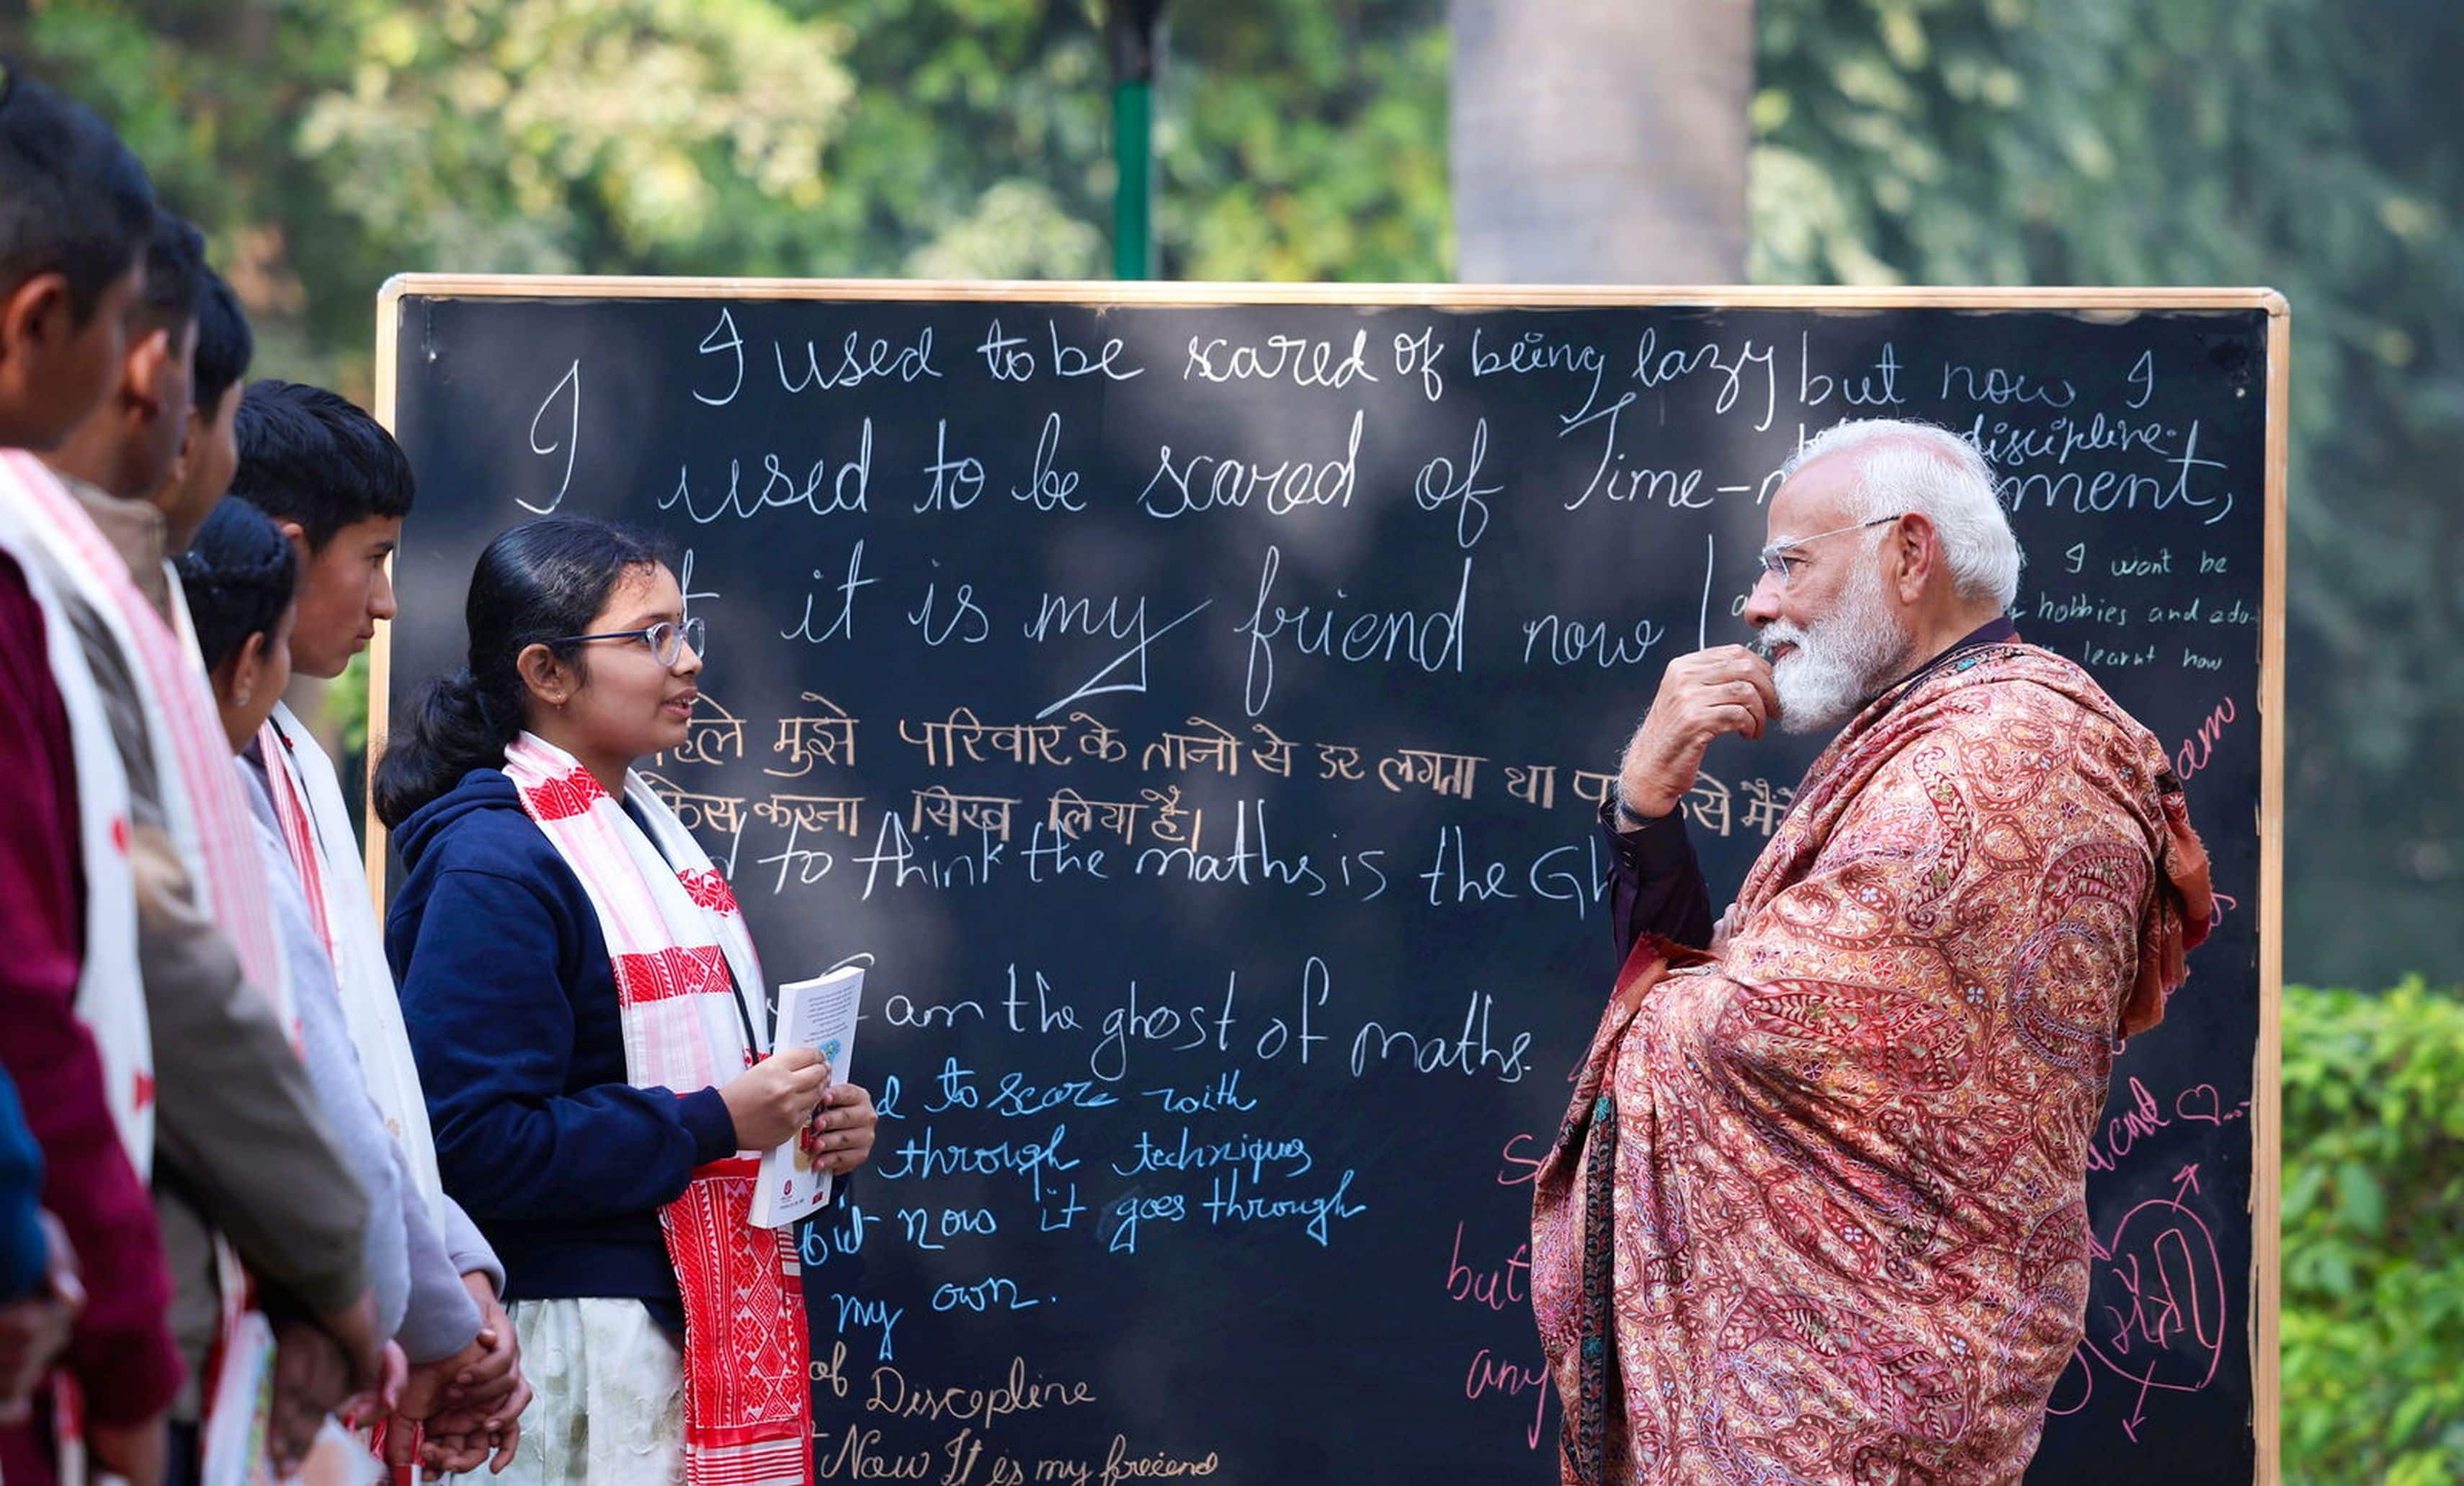 I used to be scared of being lazy but now I
discipline.
I used to be scared of Time-
ment,
it is my friend now!
I want be
hobbies and edu-
learnt how
मुझे परिवार के तानो से डर लगता था
मैंने
करना सिख लिया है।
to think the maths is the Gh
am the ghost of maths.
to score with
through techniques
but now it goes through
my own.
but
any
of Discepline
Now It is my freiend